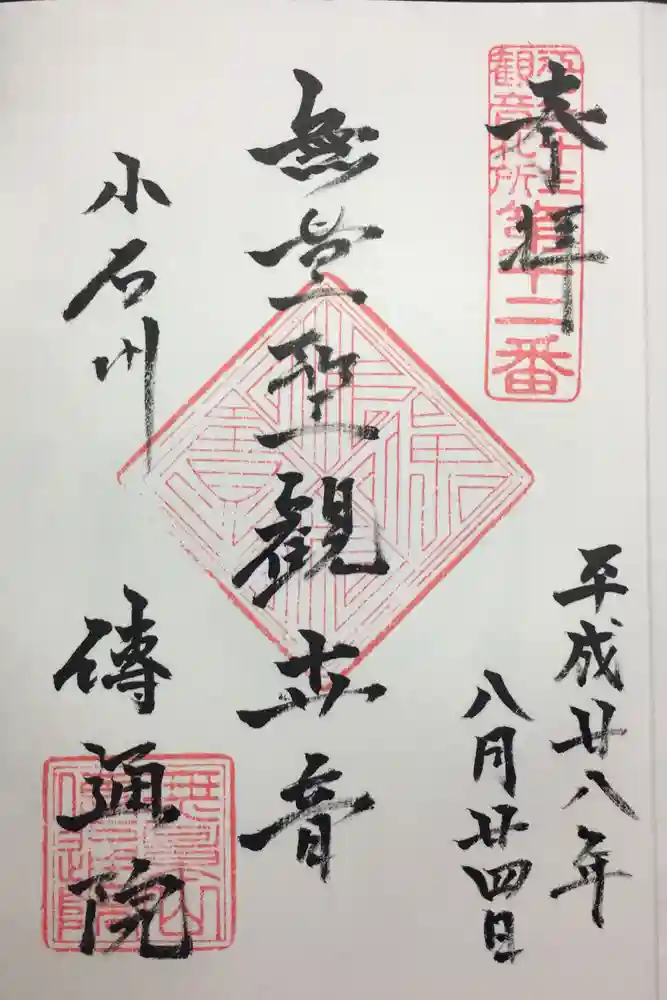 奉拝
江戸三十三
観音札所
第十二番
平成廿八年
八月廿四日
無量聖観世音
小石川
傳通院
無量山
傳通院